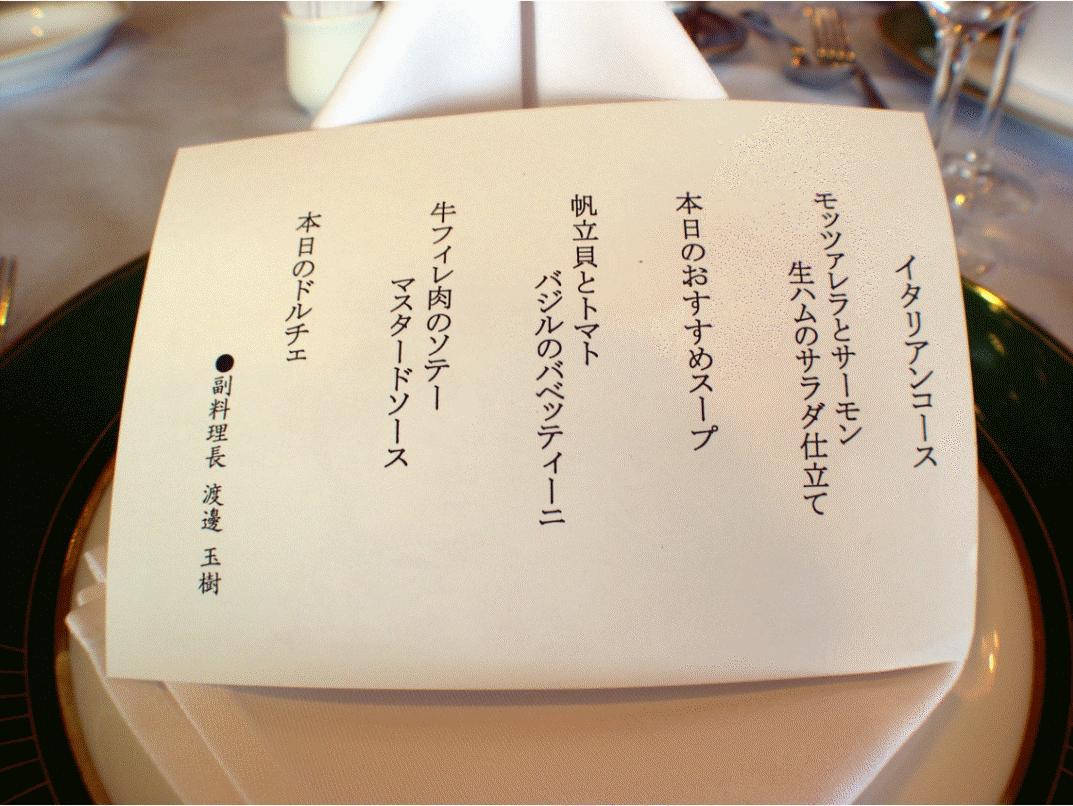 イタリアンコース
モッツァレラとサーモン
生ハムのサラダ仕立て
本日のおすすめスープ
帆立貝とトマト
バジルのバベッティーニ
牛フィレ肉のソテー
マスタードソース
本日のドルチェ
●副料理長 渡邊 玉樹